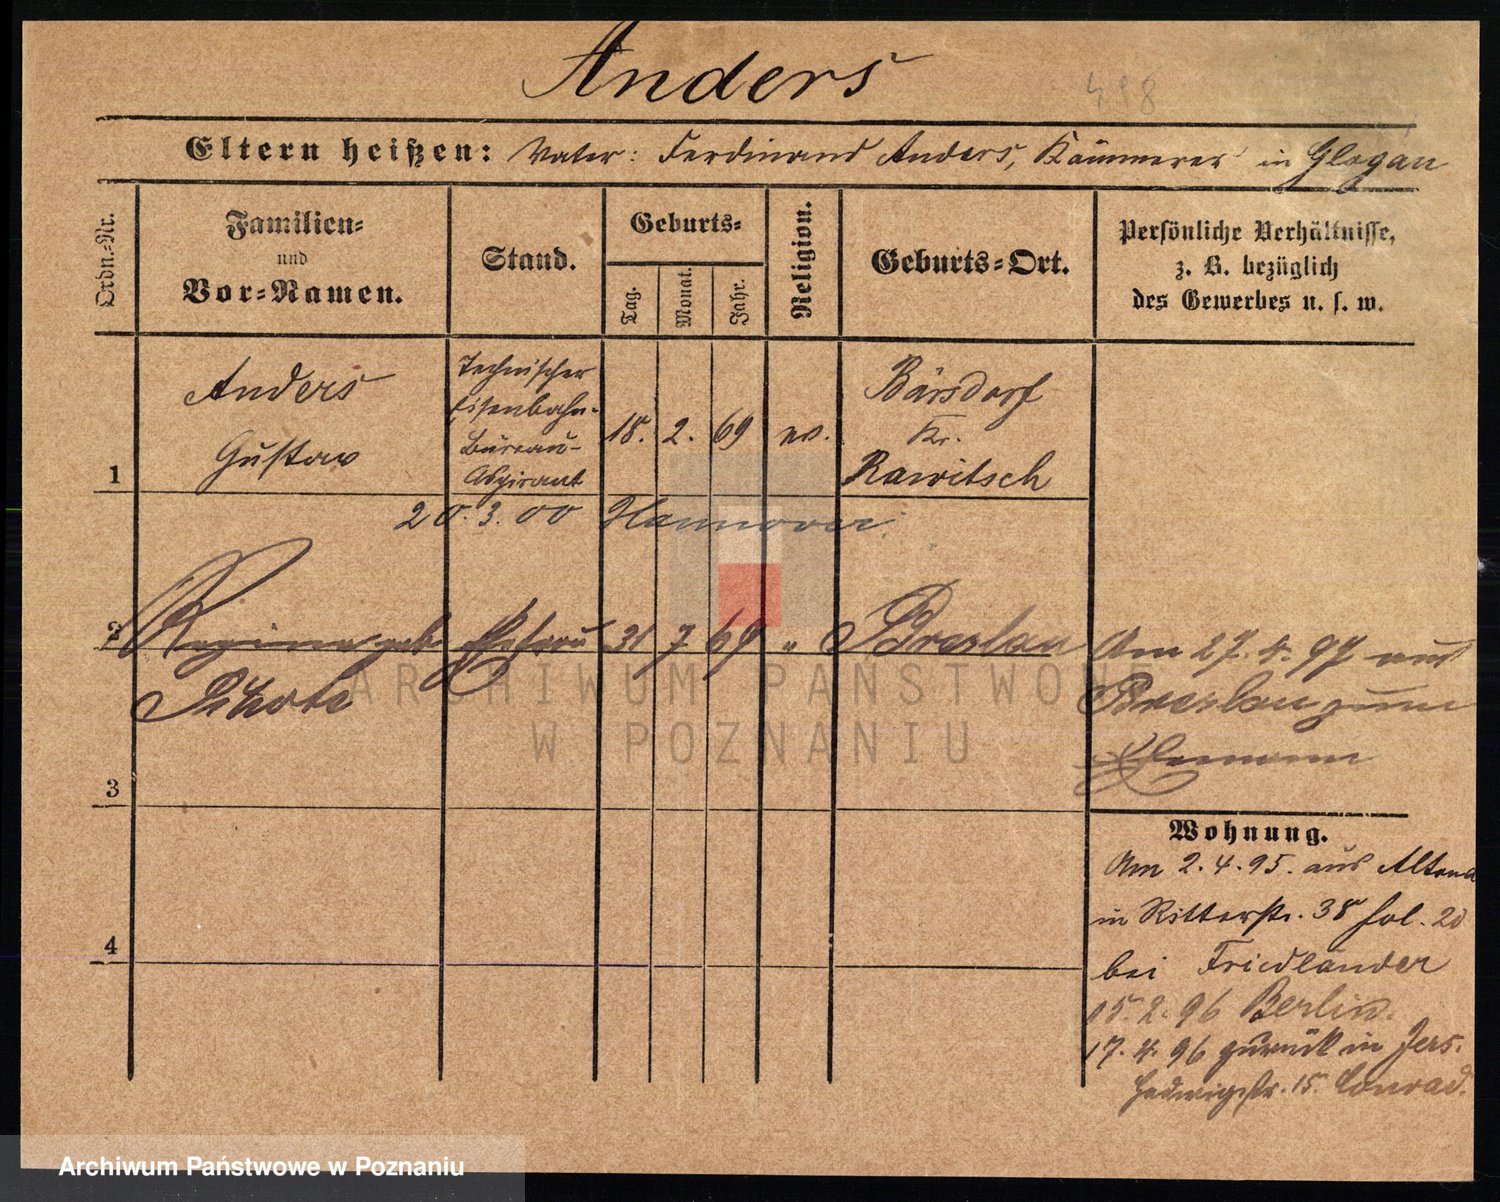 Anders
498
Eltern heißen: Vater: Ferdinand Anders, Kämmerer in Glogau
Ordn.-Nr.
Familien-
und
Vor-Namen.
Stand.
Geburts-
Tag.
Monat.
Jahr.
Religion.
Geburts-Ort.
Persönliche Verhältnisse,
z. B. bezüglich
des Gewerbes u. s. w.
1
Anders
Gustav
Technischer
Eisenbahn-
Büreau-
Aspirant
18. 2. 69 ev.
Bärsdorf
Kr.
Rawitsch
20. 3. 00 Hannover
2
Regina geb.
Ehefrau 31 7 69 " Breslau
Am 27. 4. 97 aus
Breslau zum
Ehemann
3
Wohnung.
Am 2. 4. 95. aus Altona
in Ritterstr. 38 fol. 20
bei Friedländer
15. 2. 96 Berlin.
17. 4. 96 zurück in Jers.
Hedwigstr. 15 Conrad.
4
ARCHIWUM PAŃSTWOWE
W POZNANIU
Archiwum Państwowe w Poznaniu